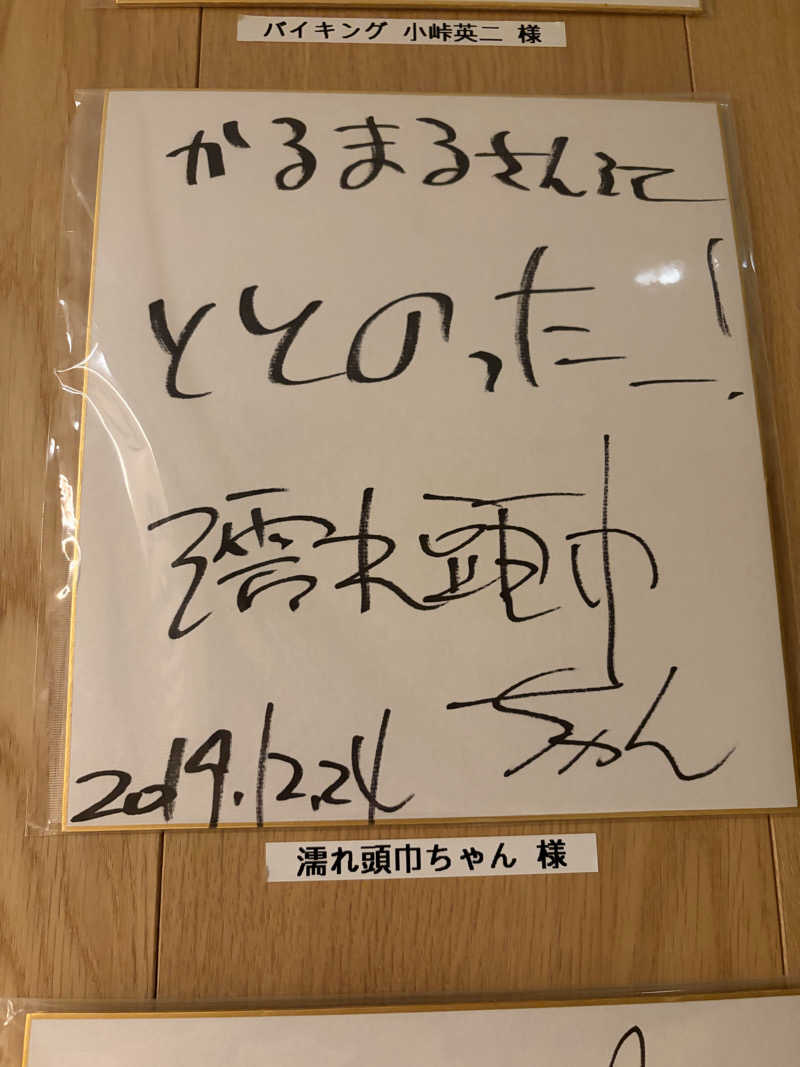 バイキング 小峠英二 様
かるまるさんにて
ととのったー!
濡れ頭巾
ちゃん
2019.12.24
濡れ頭巾ちゃん 様